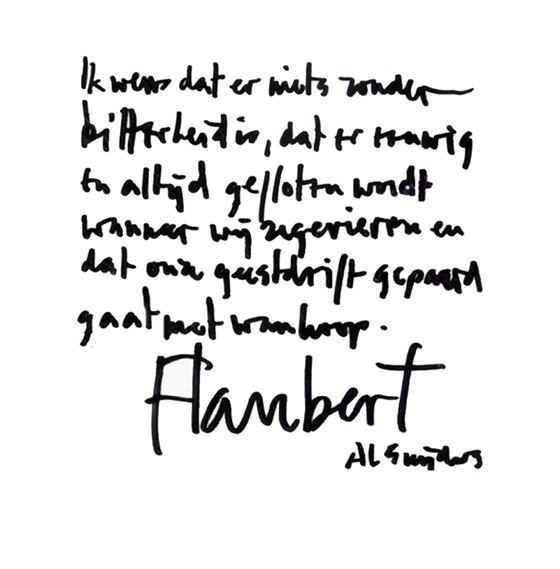 Ik wens dat er niets zonder
bitterheid is, dat er eeuwig
en altijd gefloten wordt
wanneer wij zegevieren en
dat onze geestdrift gepaard
gaat met wanhoop.
Flaubert
AL Snijders